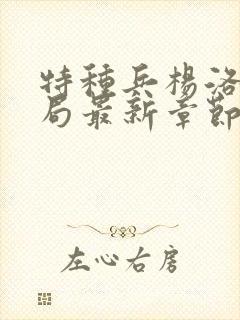 特種兵楊洛
局最新章節
左心右房